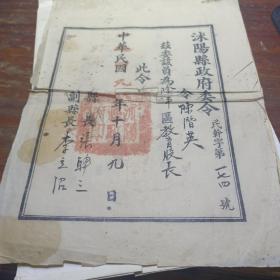 沭陽縣政府委令
民幹字第一七四號
令陳階英
茲委該員為陰平區教育股長
此令
縣長張驊三
副縣長李立沼
中華民國九年十月九日